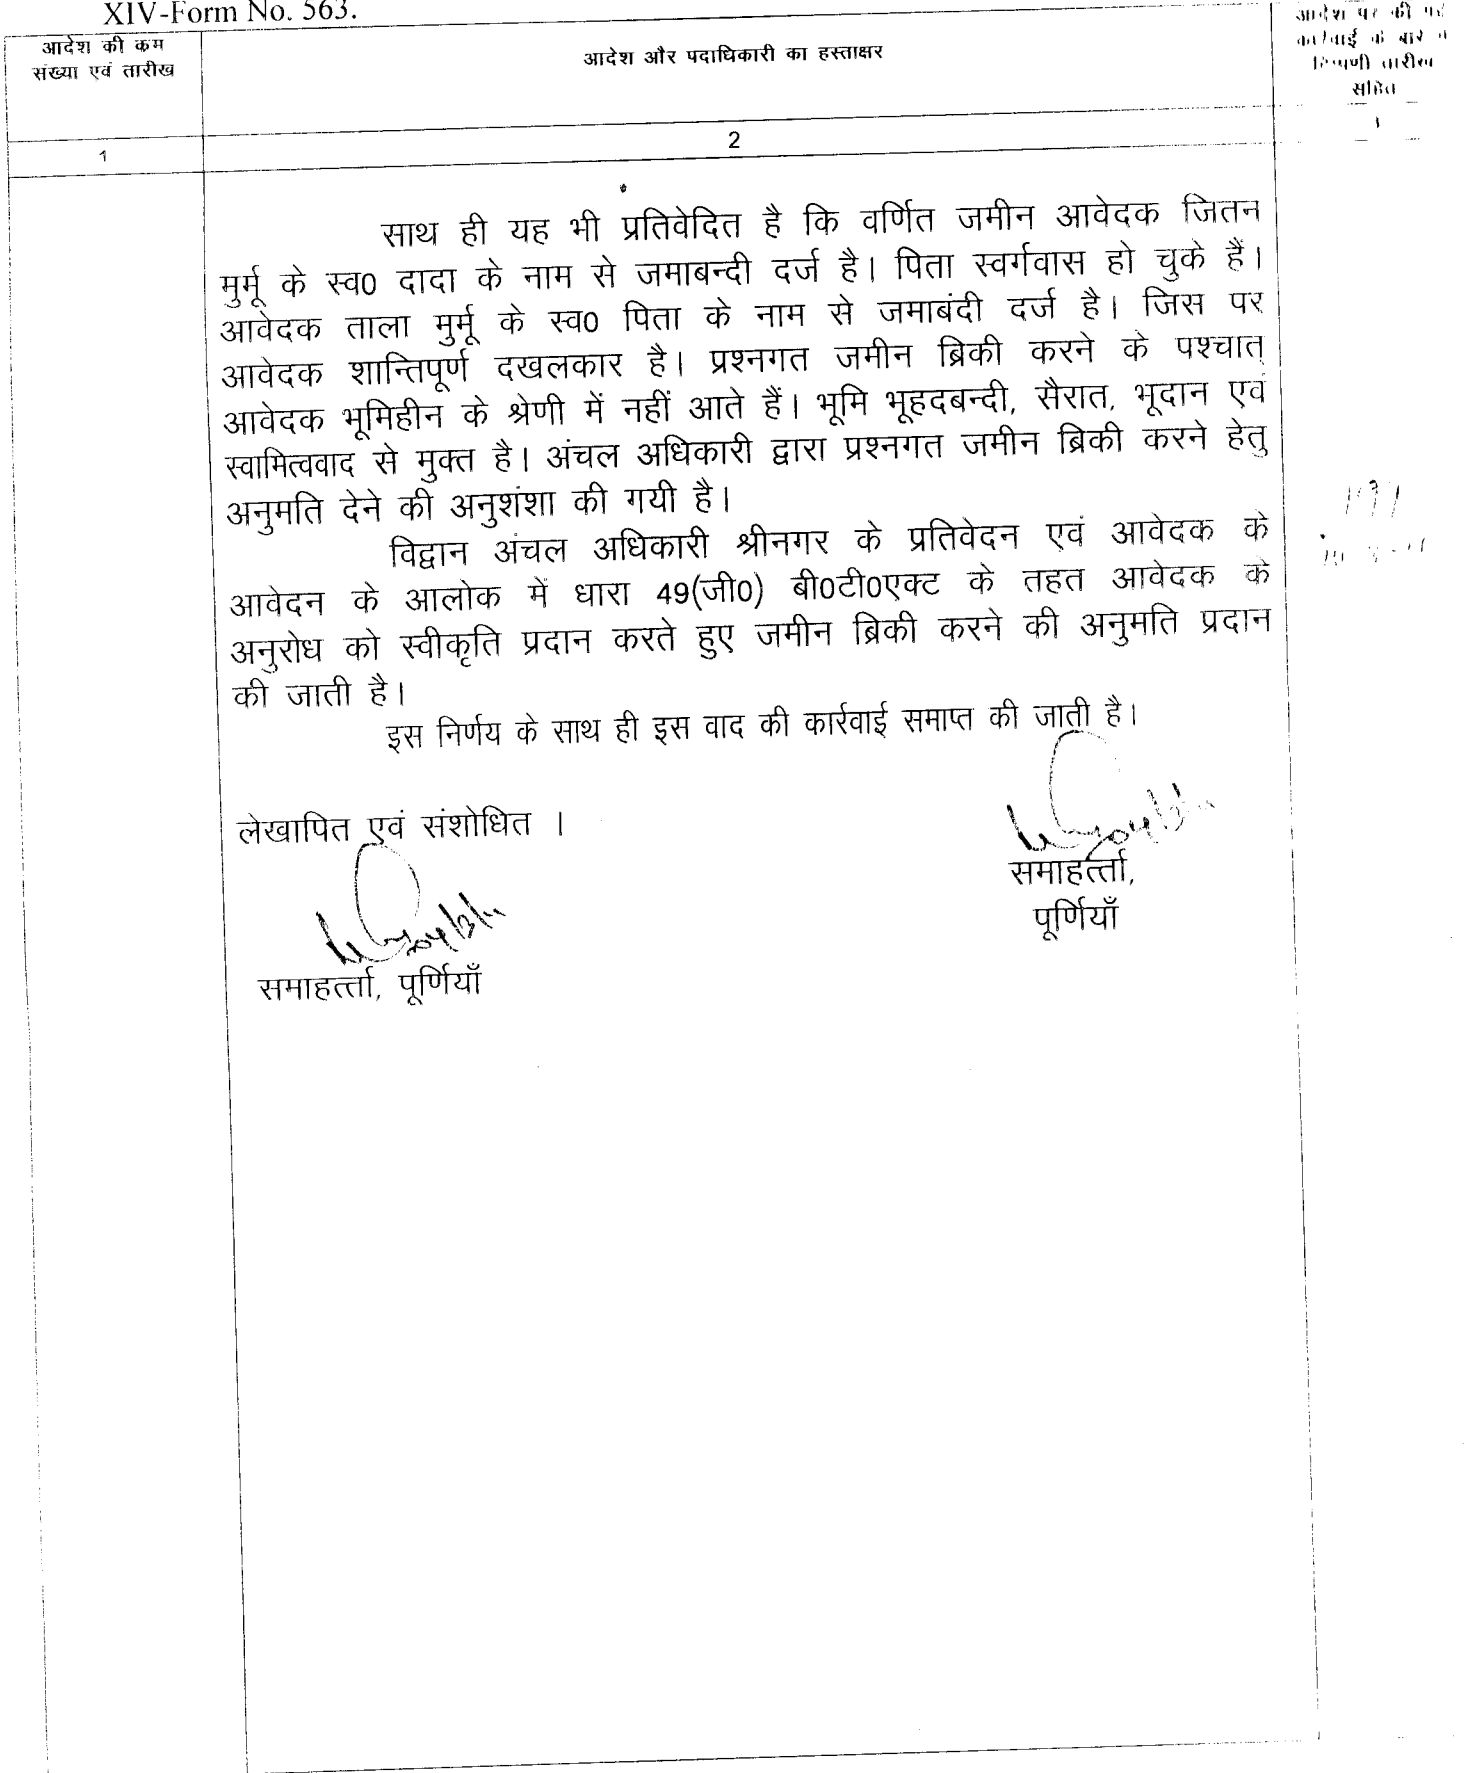 XIV-Form No. 563.
आदेश की कम
संख्या एवं तारीख
आदेश और पदाधिकारी का हस्ताक्षर
आदेश पर की गई
कार्रवाई के बारे में
टिप्पणी तारीख
सहित
1
2
साथ ही यह भी प्रतिवेदित है कि वर्णित जमीन आवेदक जितन
मुर्मू के स्व0 दादा के नाम से जमाबन्दी दर्ज है। पिता स्वर्गवास हो चुके हैं।
आवेदक ताला मुर्मू के स्व0 पिता के नाम से जमाबंदी दर्ज है। जिस पर
आवेदक शान्तिपूर्ण दखलकार है। प्रश्नगत जमीन ब्रिकी करने के पश्चात्
आवेदक भूमिहीन के श्रेणी में नहीं आते हैं। भूमि भूहदबन्दी, सैरात, भूदान एवं
स्वामित्ववाद से मुक्त है। अंचल अधिकारी द्वारा प्रश्नगत जमीन ब्रिकी करने हेतु
अनुमति देने की अनुशंशा की गयी है।
विद्वान अंचल अधिकारी श्रीनगर के प्रतिवेदन एवं आवेदक के
आवेदन के आलोक में धारा 49(जी0) बी0टी0एक्ट के तहत आवेदक के
अनुरोध को स्वीकृति प्रदान करते हुए जमीन ब्रिकी करने की अनुमति प्रदान
की जाती है।
इस निर्णय के साथ ही इस वाद की कार्रवाई समाप्त की जाती है।
लेखापित एवं संशोधित ।
समाहर्त्ता,
पूर्णियाँ
समाहर्त्ता, पूर्णियाँ